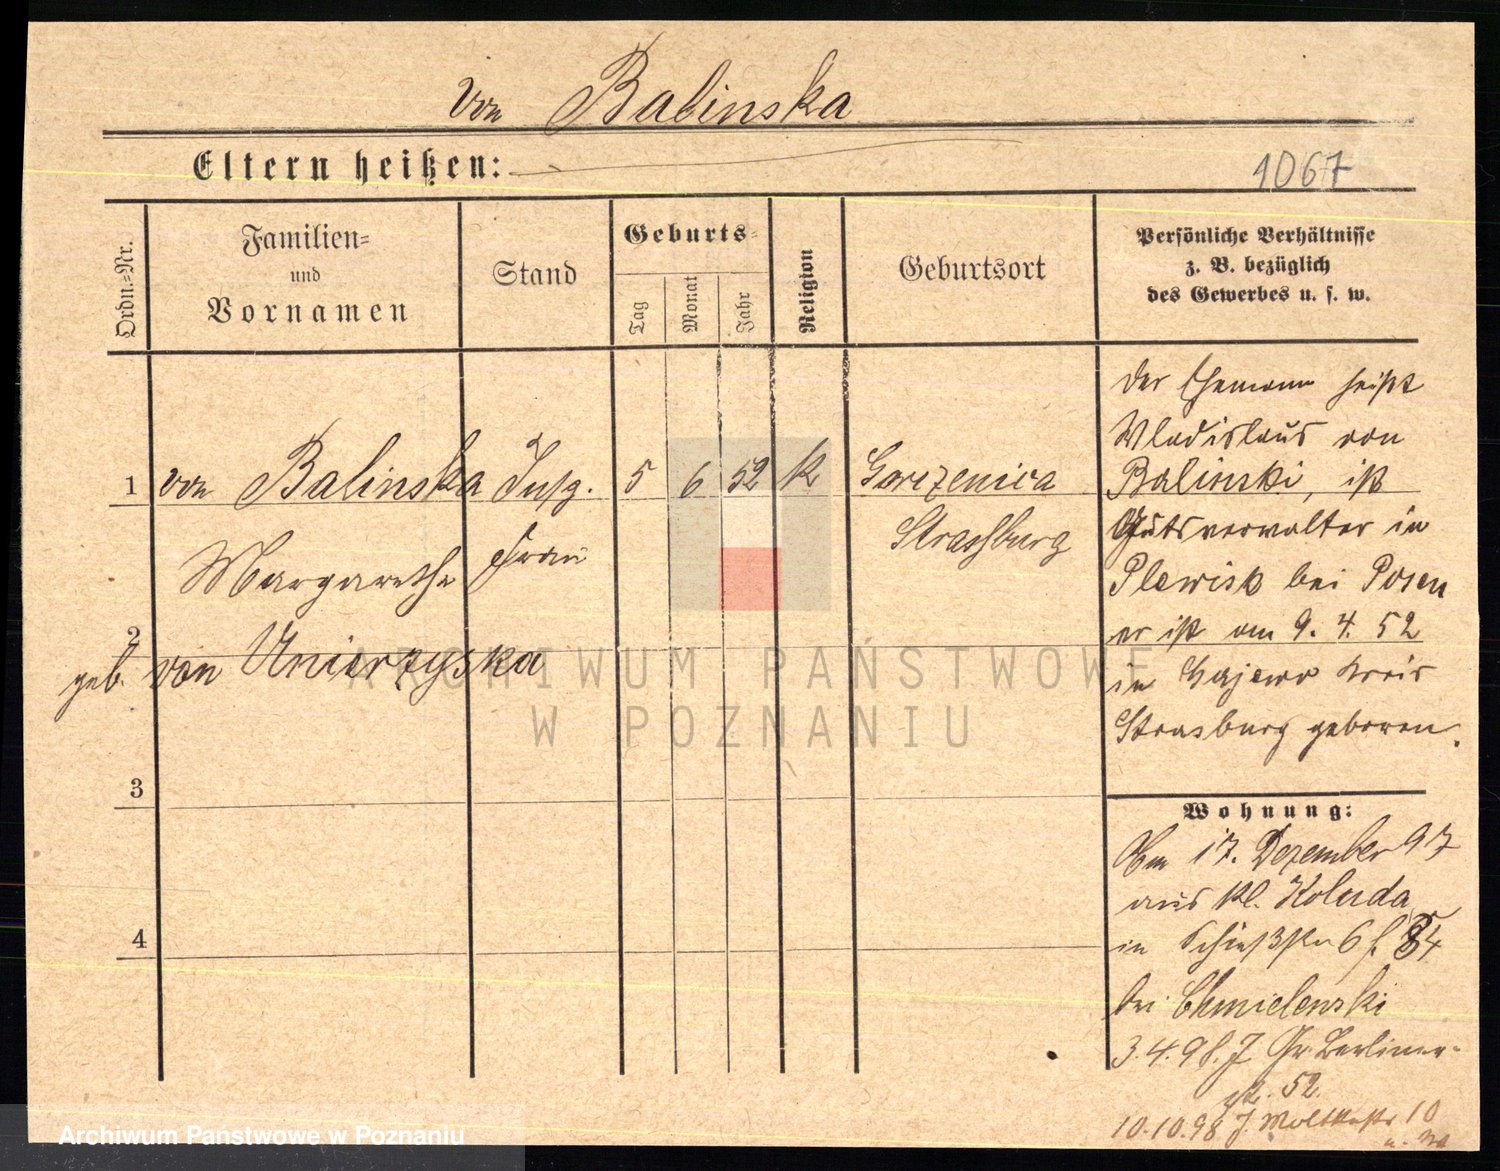 von Balinska
Eltern heißen:
1067
Ordn.=Nr.
Familien=
und
Vornamen
Stand
Geburts=
Tag
Monat
Jahr
Religion
Geburtsort
Persönliche Verhältnisse
z. B. bezüglich
des Gewerbes u. s. w.
1
von Balinska
Insp.
5
6
52
K
Gorczenica
Margarethe
Frau
Strassburg
2
geb. von Unierzyska
3
4
Der Ehemann heißt
Wladislaus von
Balinski, ist
Gutsverwalter in
Plewisk bei Posen
er ist am 9. 4. 52
in Gajewo Kreis
Strasburg geboren.
Wohnung:
Am 17. Dezember 97
aus Kl. Koluda
in Schießstr 6
bei Chmielewski
3.4.98. J. Gr. Berliner-
str. 52.
10.10.98 J. Moltkestr 10
ARCHIWUM PAŃSTWOWE
W POZNANIU
Archiwum Państwowe w Poznaniu